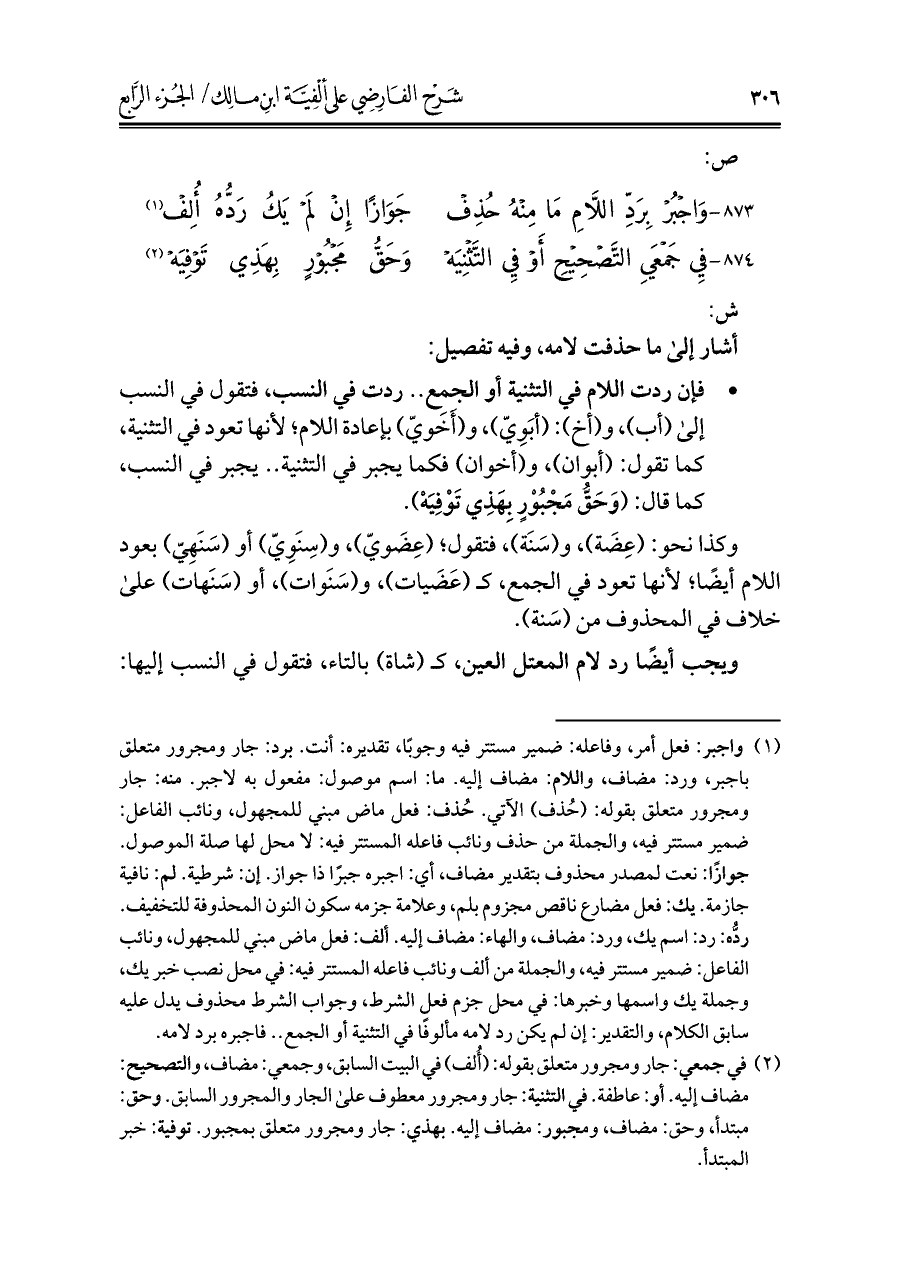 ٣٠٦ شَرْح الفَارِضِي على أَلْفِيَّة ابنِ مالِك / الجُزء الرَّابع
ص:
٨٧٣-وَاجْبُرْ بِرَدِّ اللَّامِ مَا مِنْهُ حُذِفْ جَوَازًا إِنْ لَمْ يَكُ رَدُّهُ أُلِفْ(١)
٨٧٤-فِي جَمْعَيِ التَّصْحِيْحِ أَوْ فِي التَّثْنِيَهْ وَحَقُّ مَجْبُوْرٍ بِهَذِي تَوْفِيَهْ(٢)
ش:
أشار إلىٰ ما حذفت لامه، وفيه تفصيل:
• فإن ردت اللام في التثنية أو الجمع.. ردت في النسب، فتقول في النسب
إلىٰ (أب)، و(أخ): (أبَوِيّ)، و(أَخَويّ) بإعادة اللام؛ لأنها تعود في التثنية،
كما تقول: (أبوان)، و(أخوان) فكما يجبر في التثنية.. يجبر في النسب،
كما قال: (وَحَقُّ مَجْبُوْرٍ بِهَذِي تَوْفِيَهْ).
وكذا نحو: (عِضَة)، و(سَنَة)، فتقول؛ (عِضَويّ)، و(سِنَوِيّ) أو (سَنَهِيّ) بعود
اللام أيضًا؛ لأنها تعود في الجمع، كـ (عَضَيات)، و(سَنَوات)، أو (سَنَهات) علىٰ
خلاف في المحذوف من (سَنة).
ويجب أيضًا رد لام المعتل العين، كـ (شاة) بالتاء، فتقول في النسب إليها:
(١) واجبر: فعل أمر، وفاعله: ضمير مستتر فيه وجوبًا، تقديره: أنت. برد: جار ومجرور متعلق
باجبر، ورد: مضاف، واللام: مضاف إليه. ما: اسم موصول: مفعول به لاجبر. منه: جار
ومجرور متعلق بقوله: (حُذف) الآتي. حُذف: فعل ماض مبني للمجهول، ونائب الفاعل:
ضمير مستتر فيه، والجملة من حذف ونائب فاعله المستتر فيه: لا محل لها صلة الموصول.
جوازًا: نعت لمصدر محذوف بتقدير مضاف، أي: اجبره جبرًا ذا جواز. إن: شرطية. لم: نافية
جازمة. يك: فعل مضارع ناقص مجزوم بلم، وعلامة جزمه سكون النون المحذوفة للتخفيف.
ردُّه: رد: اسم يك، ورد: مضاف، والهاء: مضاف إليه. ألف: فعل ماض مبني للمجهول، ونائب
الفاعل: ضمير مستتر فيه، والجملة من ألف ونائب فاعله المستتر فيه: في محل نصب خبر يك،
وجملة يك واسمها وخبرها: في محل جزم فعل الشرط، وجواب الشرط محذوف يدل عليه
سابق الكلام، والتقدير: إن لم يكن رد لامه مألوفًا في التثنية أو الجمع.. فاجبره برد لامه.
(٢) في جمعي: جار ومجرور متعلق بقوله: (أُلف) في البيت السابق، وجمعي: مضاف، والتصحيح:
مضاف إليه. أو: عاطفة. في التثنية: جار ومجرور معطوف علىٰ الجار والمجرور السابق. وحق:
مبتدأ، وحق: مضاف، ومجبور: مضاف إليه. بهذي: جار ومجرور متعلق بمجبور. توفية: خبر
المبتدأ.